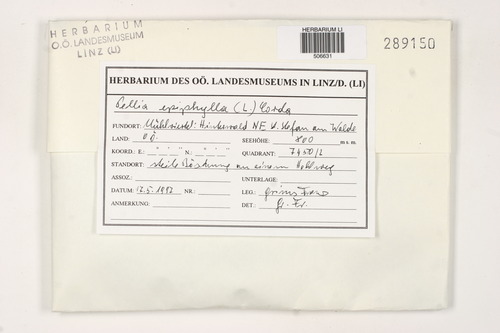 HERBARIUM
O.Ö. LANDESMUSEUM
LINZ (LI)
HERBARIUM LI
506631
289150
HERBARIUM DES OÖ. LANDESMUSEUMS IN LINZ/D. (LI)
Pellia epiphylla (L.) Corda
FUNDORT: Mühlviertel: Hinterwald NE v. Stefan am Walde
LAND: OÖ. SEEHÖHE: 800 m s. m.
KOORD.: E: ° ' " N: ° ' " QUADRANT: 7450/2
STANDORT: steile Böschung an einem Hohlweg
ASSOZ.: UNTERLAGE:
DATUM: 12.5.1993 NR.: LEG.: Grims Franz
ANMERKUNG: DET.: Gr. Fr.